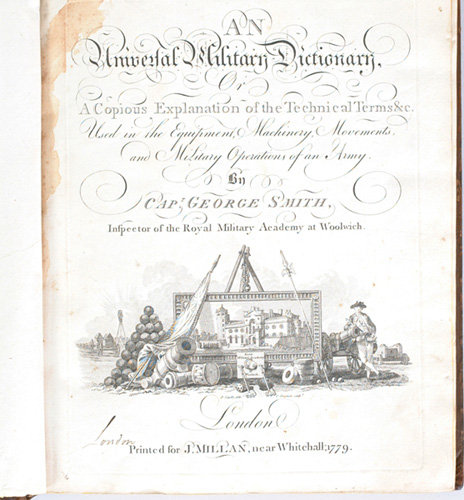 AN
Universal Military Dictionary,
Or
A Copious Explanation of the Technical Terms &c.
Used in the Equipment, Machinery, Movements,
and Military Operations of an Army.
By
CAPT. GEORGE SMITH,
Inspector of the Royal Military Academy at Woolwich.
London
London
Printed for J. MILLAN, near Whitehall; 1779.